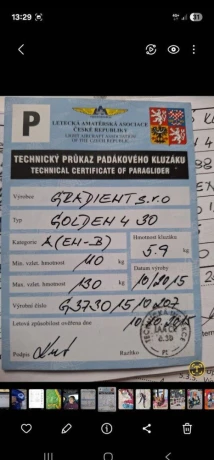 13:29
31
P
LETECKÁ AMATÉRSKÁ ASOCIACE
ČESKÉ REPUBLIKY
LIGHT AIRCRAFT ASSOCIATION
OF THE CZECH REPUBLIC
TECHNICKÝ PRŮKAZ PADÁKOVÉHO KLUZÁKU
TECHNICAL CERTIFICATE OF PARAGLIDER
Výrobce GRADIENT s.r.o
Typ GOLDEN 4 30
Kategorie A (EN-B) Hmotnost kluzáku 5.9 kg
Min. vzlet. hmotnost 110 kg Datum výroby
Max. vzlet. hmotnost 130 kg 10/2015
Výrobní číslo G3730/15/10207
Letová způsobilost ověřena dne 10.10.2015
Podpis Razítko
TECHNICKÁ
LAA ČR